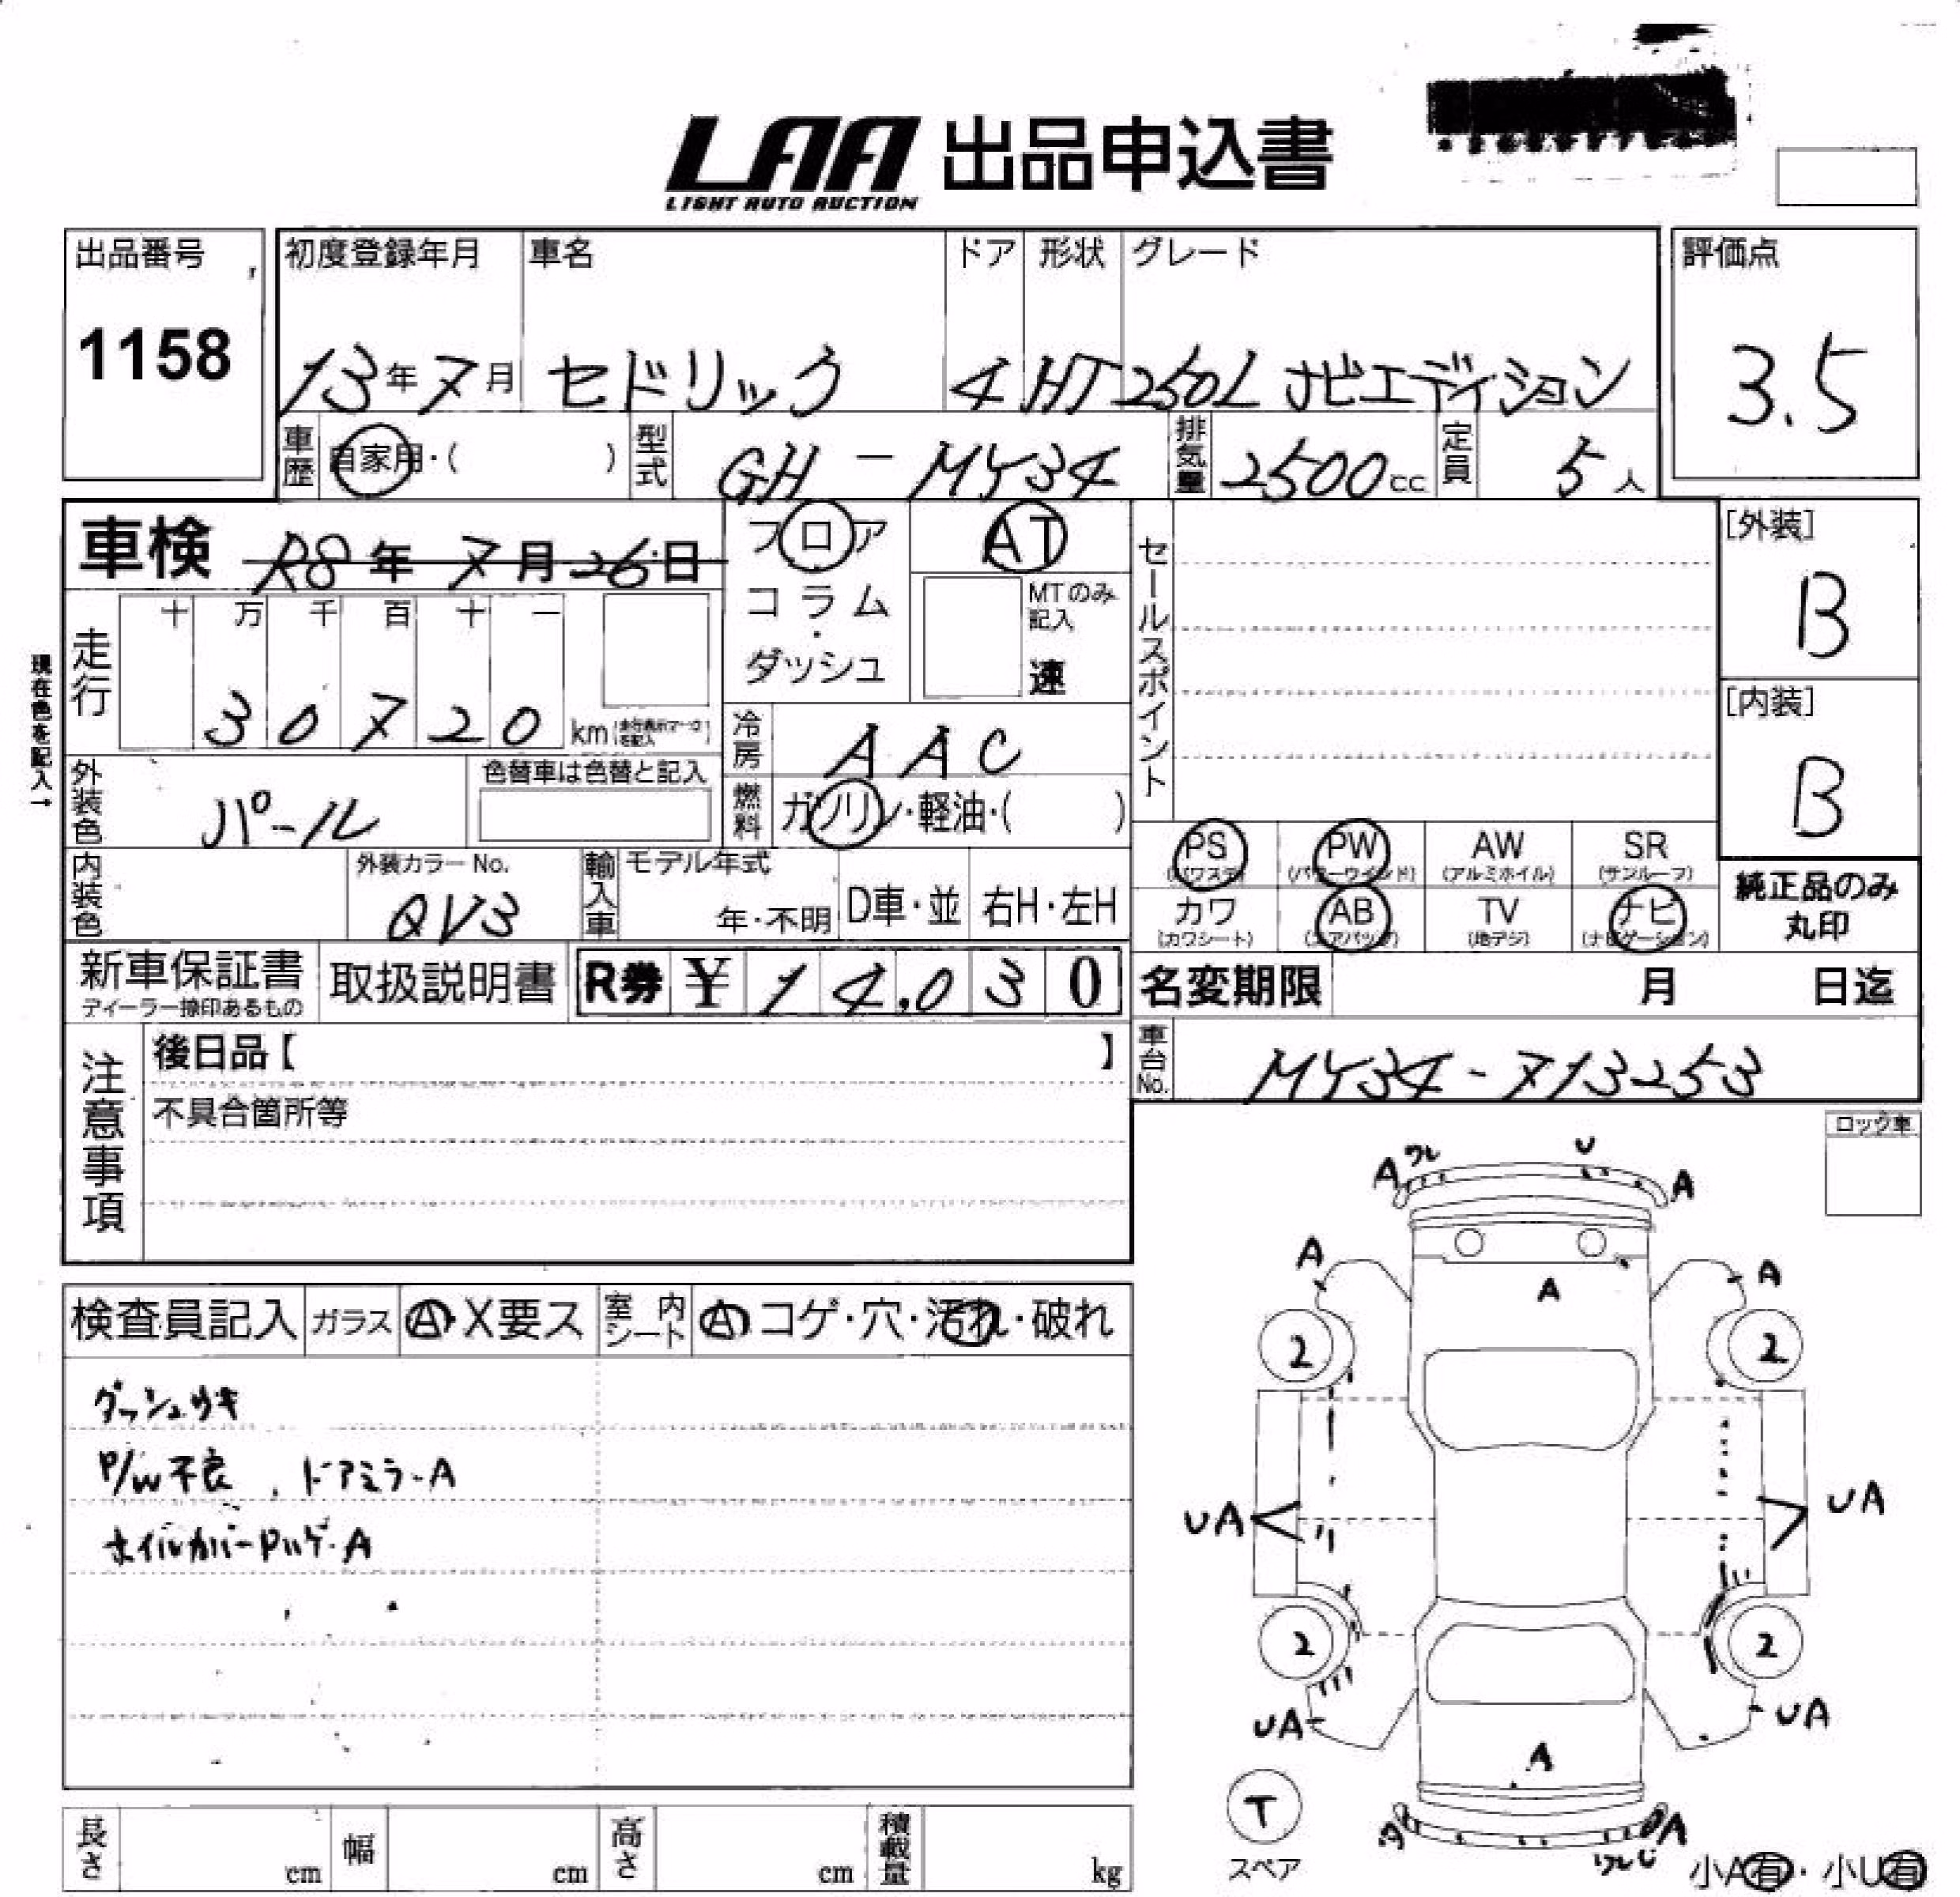 LAA 出品申込書
LIGHT AUTO AUCTION
出品番号
1158
初度登録年月 車名 ドア 形状 グレード
13年7月 セドリック 4 HT 250L ナビエディション
評価点
3.5
車歴 自家用・( ) 型式 GH-MY34 排気量 2500cc 定員 5人
車検 R8年7月26日
フロア
コラム
・
ダッシュ
AT
MTのみ
記入
速
セールスポイント
[外装]
B
[内装]
B
現在色を記入→
走行 十 万 千 百 十 一
30720 km
冷房 AAC
外装色 パール 色替車は色替と記入
燃料 ガソリン・軽油・( )
内装色 外装カラーNo. QV3
輸入車 モデル年式 年・不明 D車・並 右H・左H
PS PW AW SR
(パワステ) (パワーウインド) (アルミホイル) (サンルーフ)
カワ AB TV ナビ
(カワシート) (エアバッグ) (地デジ) (ナビゲーション)
純正品のみ
丸印
新車保証書
ディーラー捺印あるもの
取扱説明書 R券 ¥14,030
名変期限 月 日迄
車台No. MY34-713253
注意事項
後日品【 】
不具合箇所等
ロック車
検査員記入 ガラス A・X要ス 室内シート A・コゲ・穴・汚れ・破れ
ダッシュウキ
P/W不良、ドアミラーA
ホイルカバーハゲ・A
A ワレ U A
A A
A
2 2
UA UA
2 2
UA UA
A
T
スペア
A ワレ U
小A有・小U有
長さ cm 幅 cm 高さ cm 積載量 kg